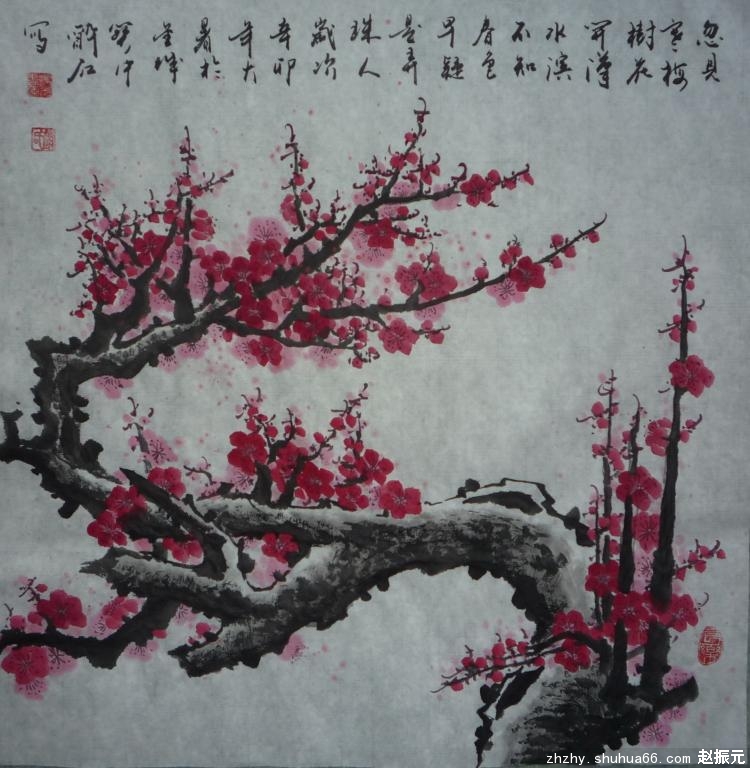 忽見
寒梅
樹花
開漢
水濱
不知
春色
早疑
是弄
珠人
歲次
辛卯
年大
暑於
金城
醉石
寫
zhzhy.shuhua66.com 赵振元